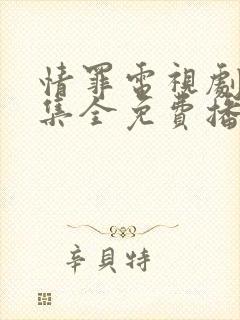 情罪電視劇
集全免費播
辛貝特